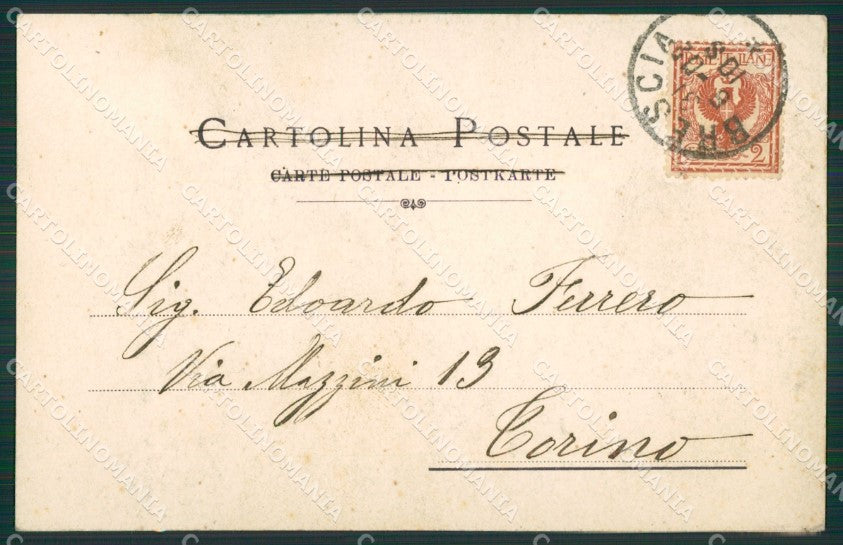 CARTOLINA POSTALE
CARTE POSTALE - POSTKARTE
BRESCIA
2
Sig. Edoardo Ferrero
Via Mazzini 13
Torino
CARTOLINOMANIA